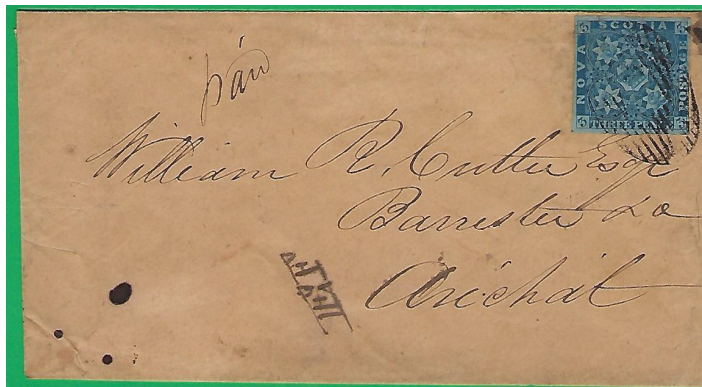 NOVA SCOTIA POSTAGE
THREE PEN
paid
William R. Cutler Esqr
Barrister &c
Arichat